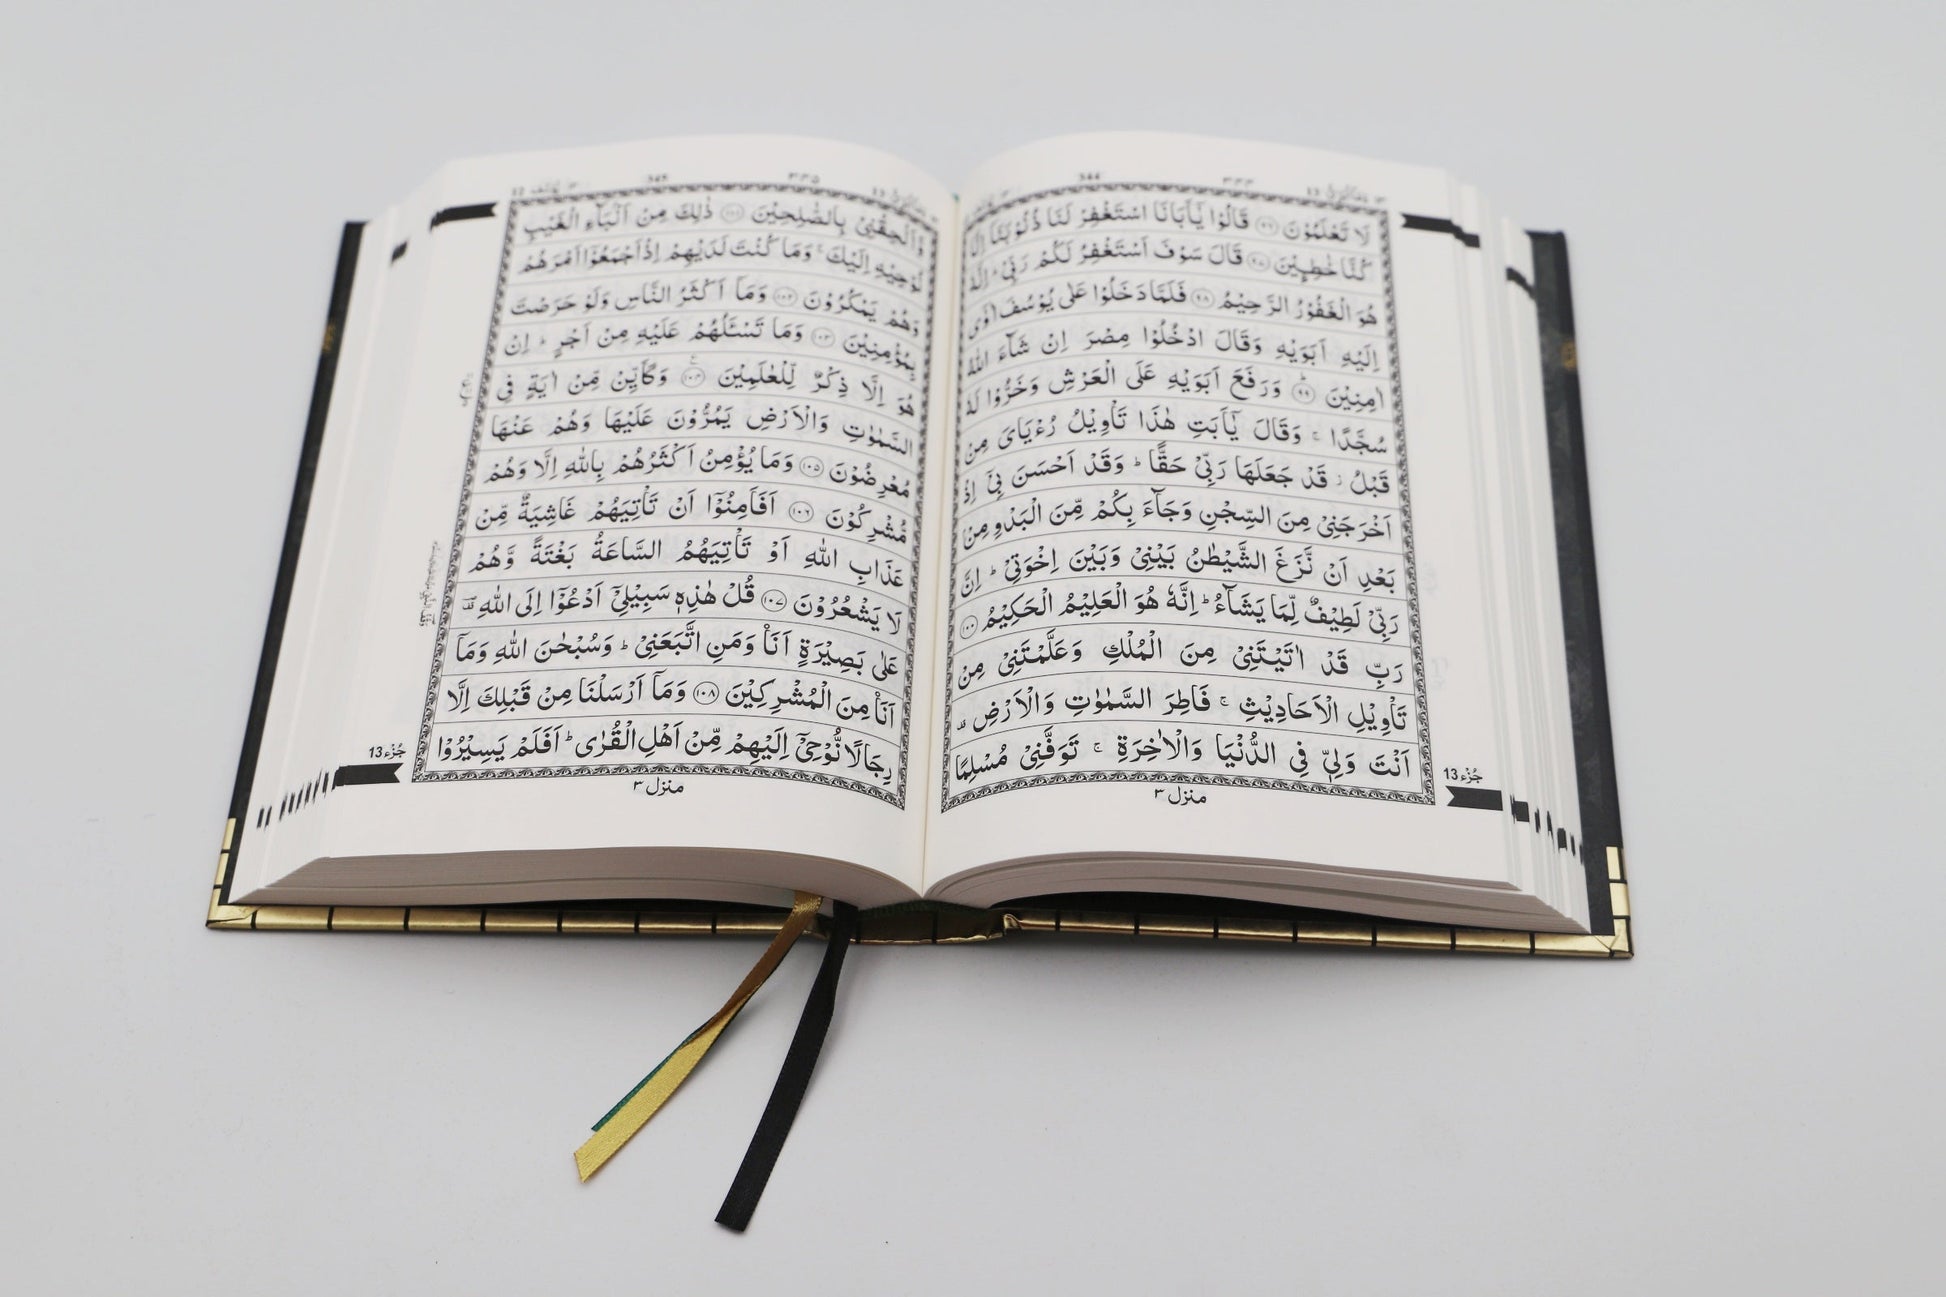 344
لَا تَعْلَمُوْنَ ۝۹۶ قَالُوْا يٰۤاَبَانَا اسْتَغْفِرْ لَنَا ذُنُوْبَنَاۤ اِنَّا
كُنَّا خٰطِـِٕيْنَ ۝۹۷ قَالَ سَوْفَ اَسْتَغْفِرُ لَكُمْ رَبِّيْ ؕ اِنَّهٗ
هُوَ الْغَفُوْرُ الرَّحِيْمُ ۝۹۸ فَلَمَّا دَخَلُوْا عَلٰى يُوْسُفَ اٰوٰۤى
اِلَيْهِ اَبَوَيْهِ وَقَالَ ادْخُلُوْا مِصْرَ اِنْ شَآءَ اللّٰهُ
اٰمِنِيْنَ ۝۹۹ وَرَفَعَ اَبَوَيْهِ عَلَى الْعَرْشِ وَخَرُّوْا لَهٗ
سُجَّدًا ۚ وَقَالَ يٰۤاَبَتِ هٰذَا تَاْوِيْلُ رُءْيَايَ مِنْ
قَبْلُ ؗ قَدْ جَعَلَهَا رَبِّيْ حَقًّا ؕ وَقَدْ اَحْسَنَ بِيْۤ اِذْ
اَخْرَجَنِيْ مِنَ السِّجْنِ وَجَآءَ بِكُمْ مِّنَ الْبَدْوِ مِنْۢ
بَعْدِ اَنْ نَّزَغَ الشَّيْطٰنُ بَيْنِيْ وَبَيْنَ اِخْوَتِيْ ؕ اِنَّ
رَبِّيْ لَطِيْفٌ لِّمَا يَشَآءُ ؕ اِنَّهٗ هُوَ الْعَلِيْمُ الْحَكِيْمُ ۝۱۰۰
رَبِّ قَدْ اٰتَيْتَنِيْ مِنَ الْمُلْكِ وَعَلَّمْتَنِيْ مِنْ
تَاْوِيْلِ الْاَحَادِيْثِ ۚ فَاطِرَ السَّمٰوٰتِ وَالْاَرْضِ ۫
اَنْتَ وَلِيّٖ فِي الدُّنْيَا وَالْاٰخِرَةِ ۚ تَوَفَّنِيْ مُسْلِمًا
جُزْء 13
منزل ۳
345 ۳۳۵
وَّاَلْحِقْنِيْ بِالصّٰلِحِيْنَ ۝۱۰۱ ذٰلِكَ مِنْ اَنْۢبَآءِ الْغَيْبِ
نُوْحِيْهِ اِلَيْكَ ۚ وَمَا كُنْتَ لَدَيْهِمْ اِذْ اَجْمَعُوْۤا اَمْرَهُمْ
وَهُمْ يَمْكُرُوْنَ ۝۱۰۲ وَمَاۤ اَكْثَرُ النَّاسِ وَلَوْ حَرَصْتَ
بِمُؤْمِنِيْنَ ۝۱۰۳ وَمَا تَسْـَٔلُهُمْ عَلَيْهِ مِنْ اَجْرٍ ؕ اِنْ
هُوَ اِلَّا ذِكْرٌ لِّلْعٰلَمِيْنَ ۝۱۰۴ وَكَاَيِّنْ مِّنْ اٰيَةٍ فِي
السَّمٰوٰتِ وَالْاَرْضِ يَمُرُّوْنَ عَلَيْهَا وَهُمْ عَنْهَا
مُعْرِضُوْنَ ۝۱۰۵ وَمَا يُؤْمِنُ اَكْثَرُهُمْ بِاللّٰهِ اِلَّا وَهُمْ
مُّشْرِكُوْنَ ۝۱۰۶ اَفَاَمِنُوْۤا اَنْ تَاْتِيَهُمْ غَاشِيَةٌ مِّنْ
عَذَابِ اللّٰهِ اَوْ تَاْتِيَهُمُ السَّاعَةُ بَغْتَةً وَّهُمْ
لَا يَشْعُرُوْنَ ۝۱۰۷ قُلْ هٰذِهٖ سَبِيْلِيْۤ اَدْعُوْۤا اِلَى اللّٰهِ ؔ
عَلٰى بَصِيْرَةٍ اَنَا وَمَنِ اتَّبَعَنِيْ ؕ وَسُبْحٰنَ اللّٰهِ وَمَاۤ
اَنَا مِنَ الْمُشْرِكِيْنَ ۝۱۰۸ وَمَاۤ اَرْسَلْنَا مِنْ قَبْلِكَ اِلَّا
رِجَالًا نُّوْحِيْۤ اِلَيْهِمْ مِّنْ اَهْلِ الْقُرٰى ؕ اَفَلَمْ يَسِيْرُوْا
جُزْء 13
منزل ۳